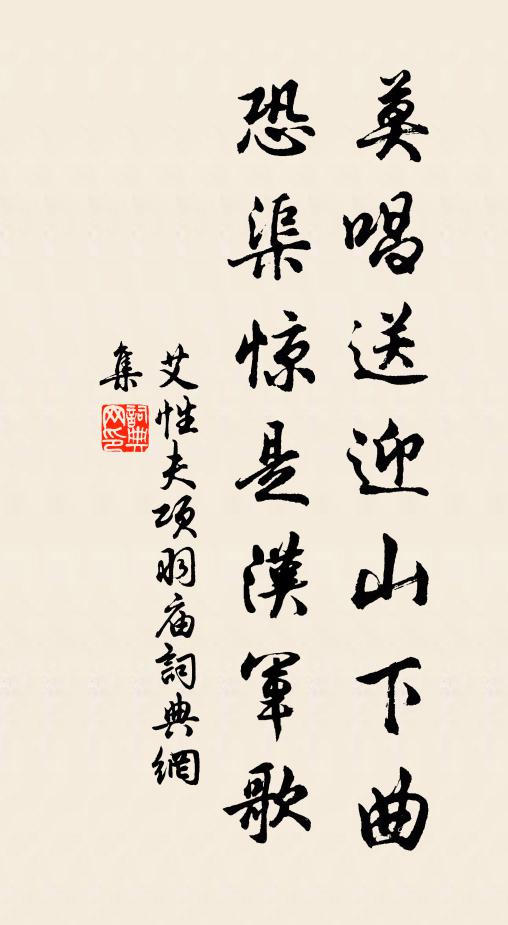 莫唱送迎山下曲
恐渠惊是漢軍歌
艾性夫項羽庙詞典網
集
詞典
网印